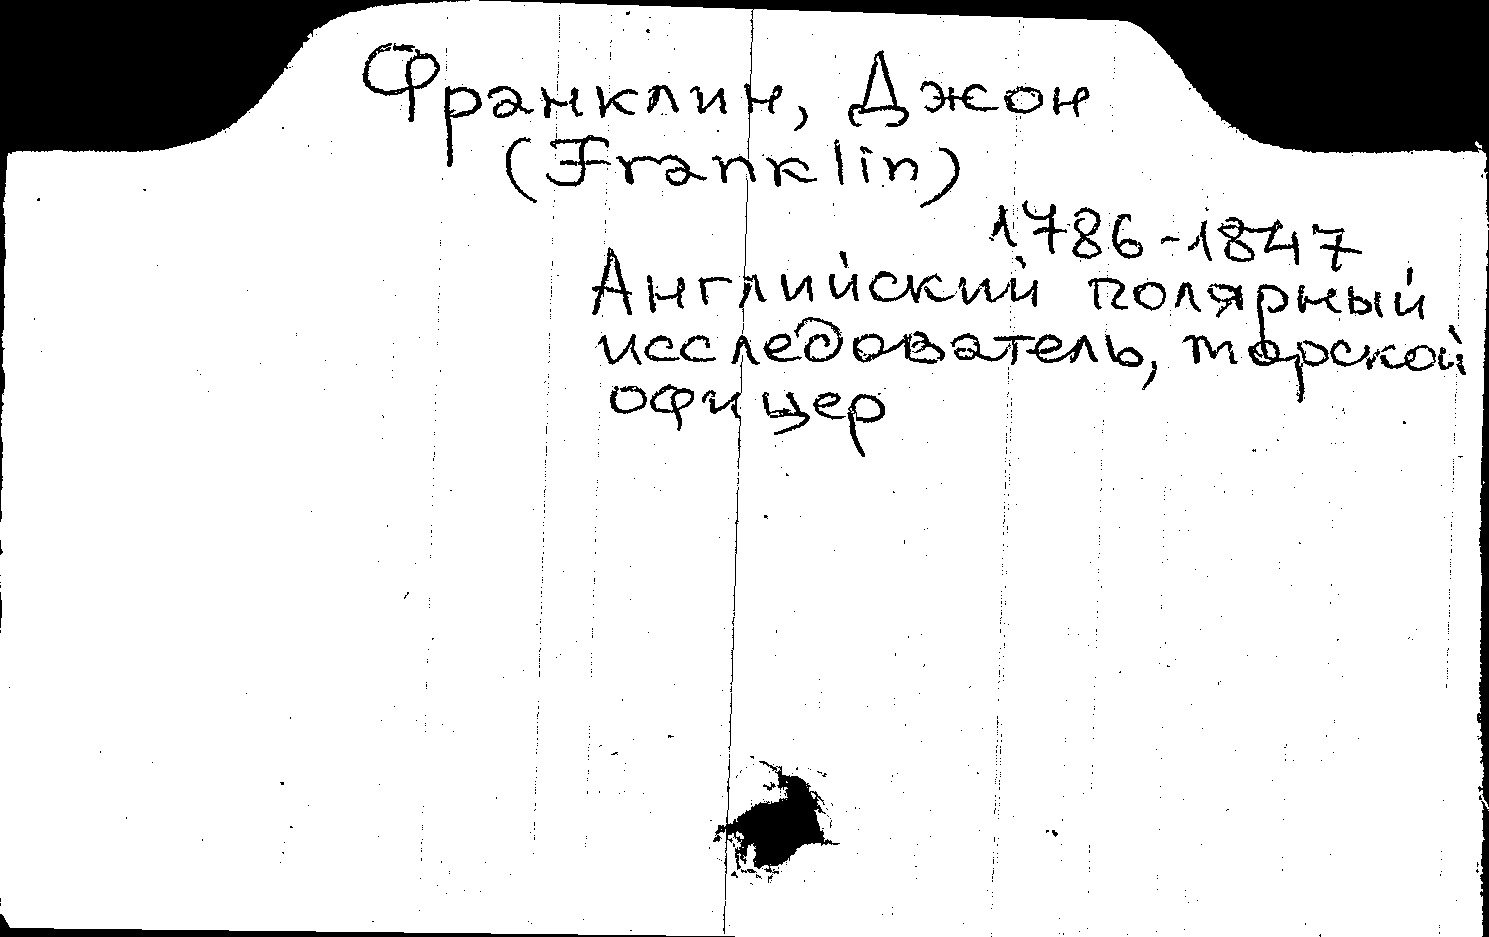 Франклин, Джон
(Franklin)
1786-1847
Английский полярный
исследователь, морской
офицер